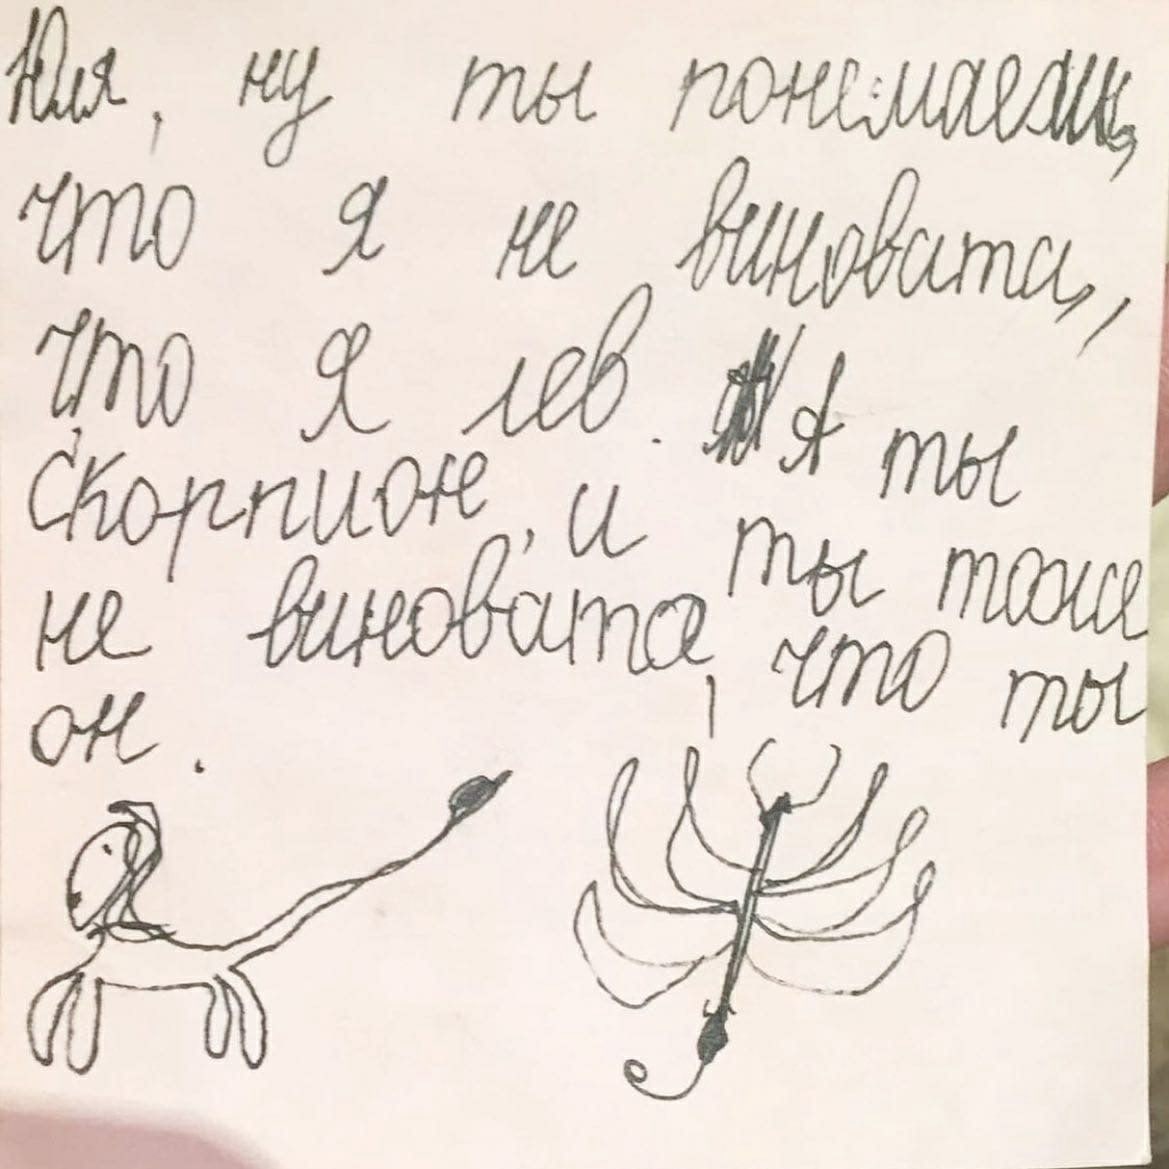 Юля, ну ты понемаешь,
что я не виновата,
что я лев. А ты
Скорпион, и ты тоже
не виновата, что ты
он.